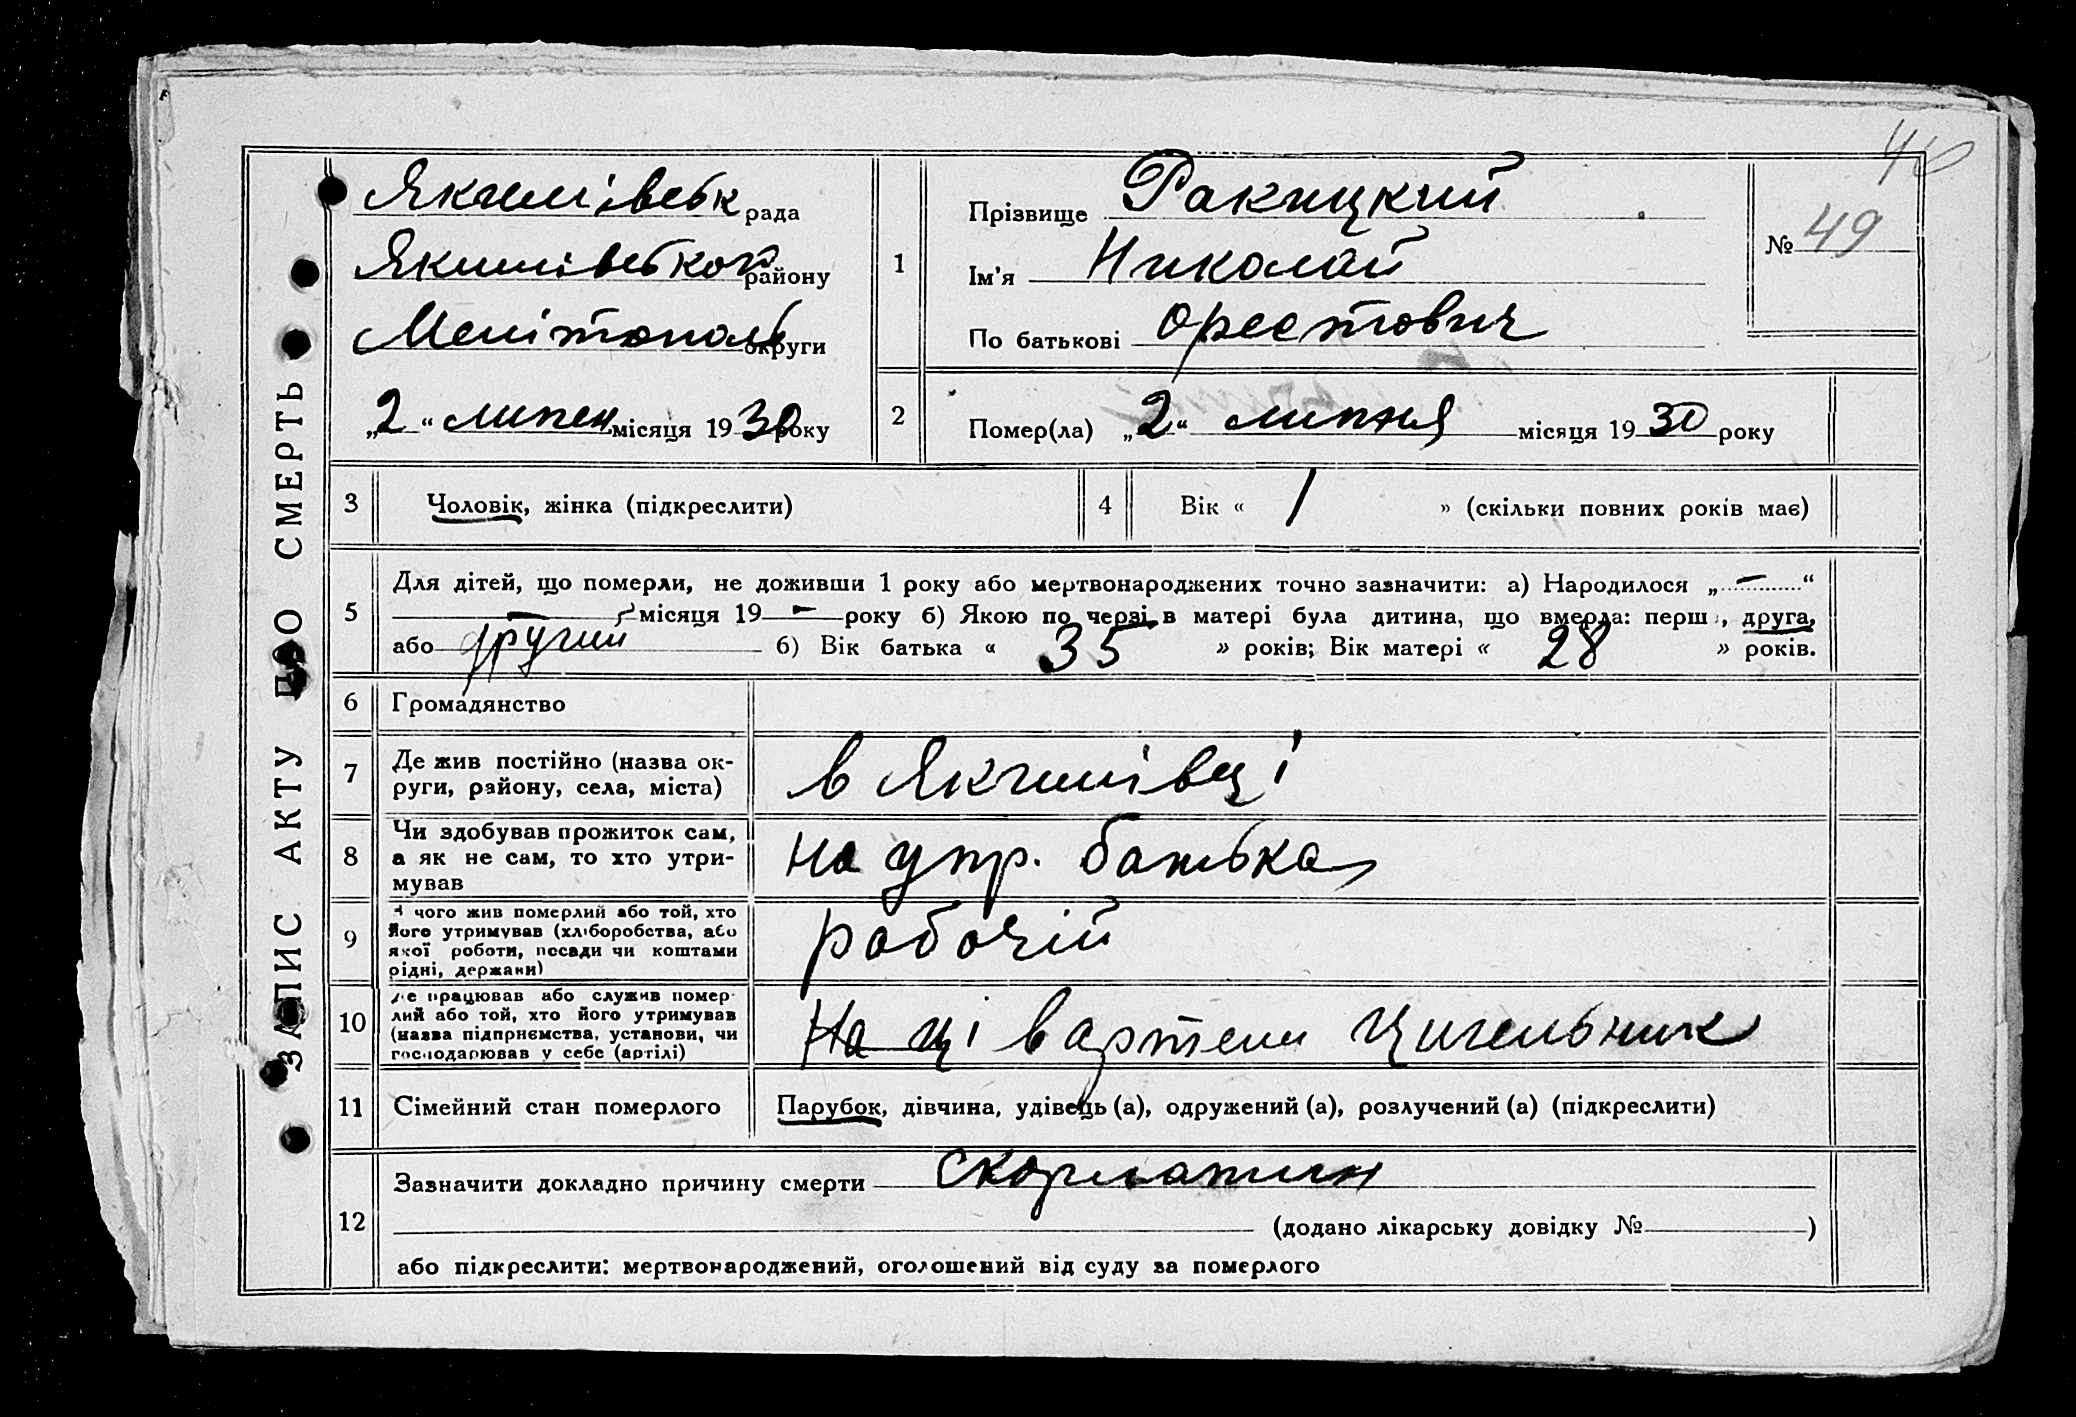 46
ЗАПИС АКТУ ПРО СМЕРТЬ
Якимівськ рада
Якимівської району
Мелітополь округи
„2“ липен місяця 1930 року
1
Прізвище Ракицкий
Ім'я Николай
По батькові Орестович
№ 49
2
Помер(ла) „2“ липня місяця 1930 року
3
Чоловік, жінка (підкреслити)
4
Вік « 1 » (скільки повних років має)
5
Для дітей, що померли, не доживши 1 року або мертвонароджених точно зазначити: а) Народилося „—“
— місяця 19 — року б) Якою по черзі в матері була дитина, що вмерла: перша, друга,
або другий б) Вік батька « 35 » років; Вік матері « 28 » років.
6
Громадянство
7
Де жив постійно (назва ок-
руги, району, села, міста)
в Якимівці
8
Чи здобував прожиток сам,
а як не сам, то хто утри-
мував
на утр. батька
9
З чого жив померлий або той, хто
його утримував (хліборобства, або
якої роботи, посади чи коштами
рідні, держави)
рабочій
10
Де працював або служив помер-
лий або той, хто його утримував
(назва підприємства, установи, чи
господарював у себе (артілі)
На ці в артели Цигельник
11
Сімейний стан померлого
Парубок, дівчина, удівець (а), одружений (а), розлучений (а) (підкреслити)
12
Зазначити докладно причину смерти скорлатин
(додано лікарську довідку № )
або підкреслити: мертвонароджений, оголошений від суду за померлого